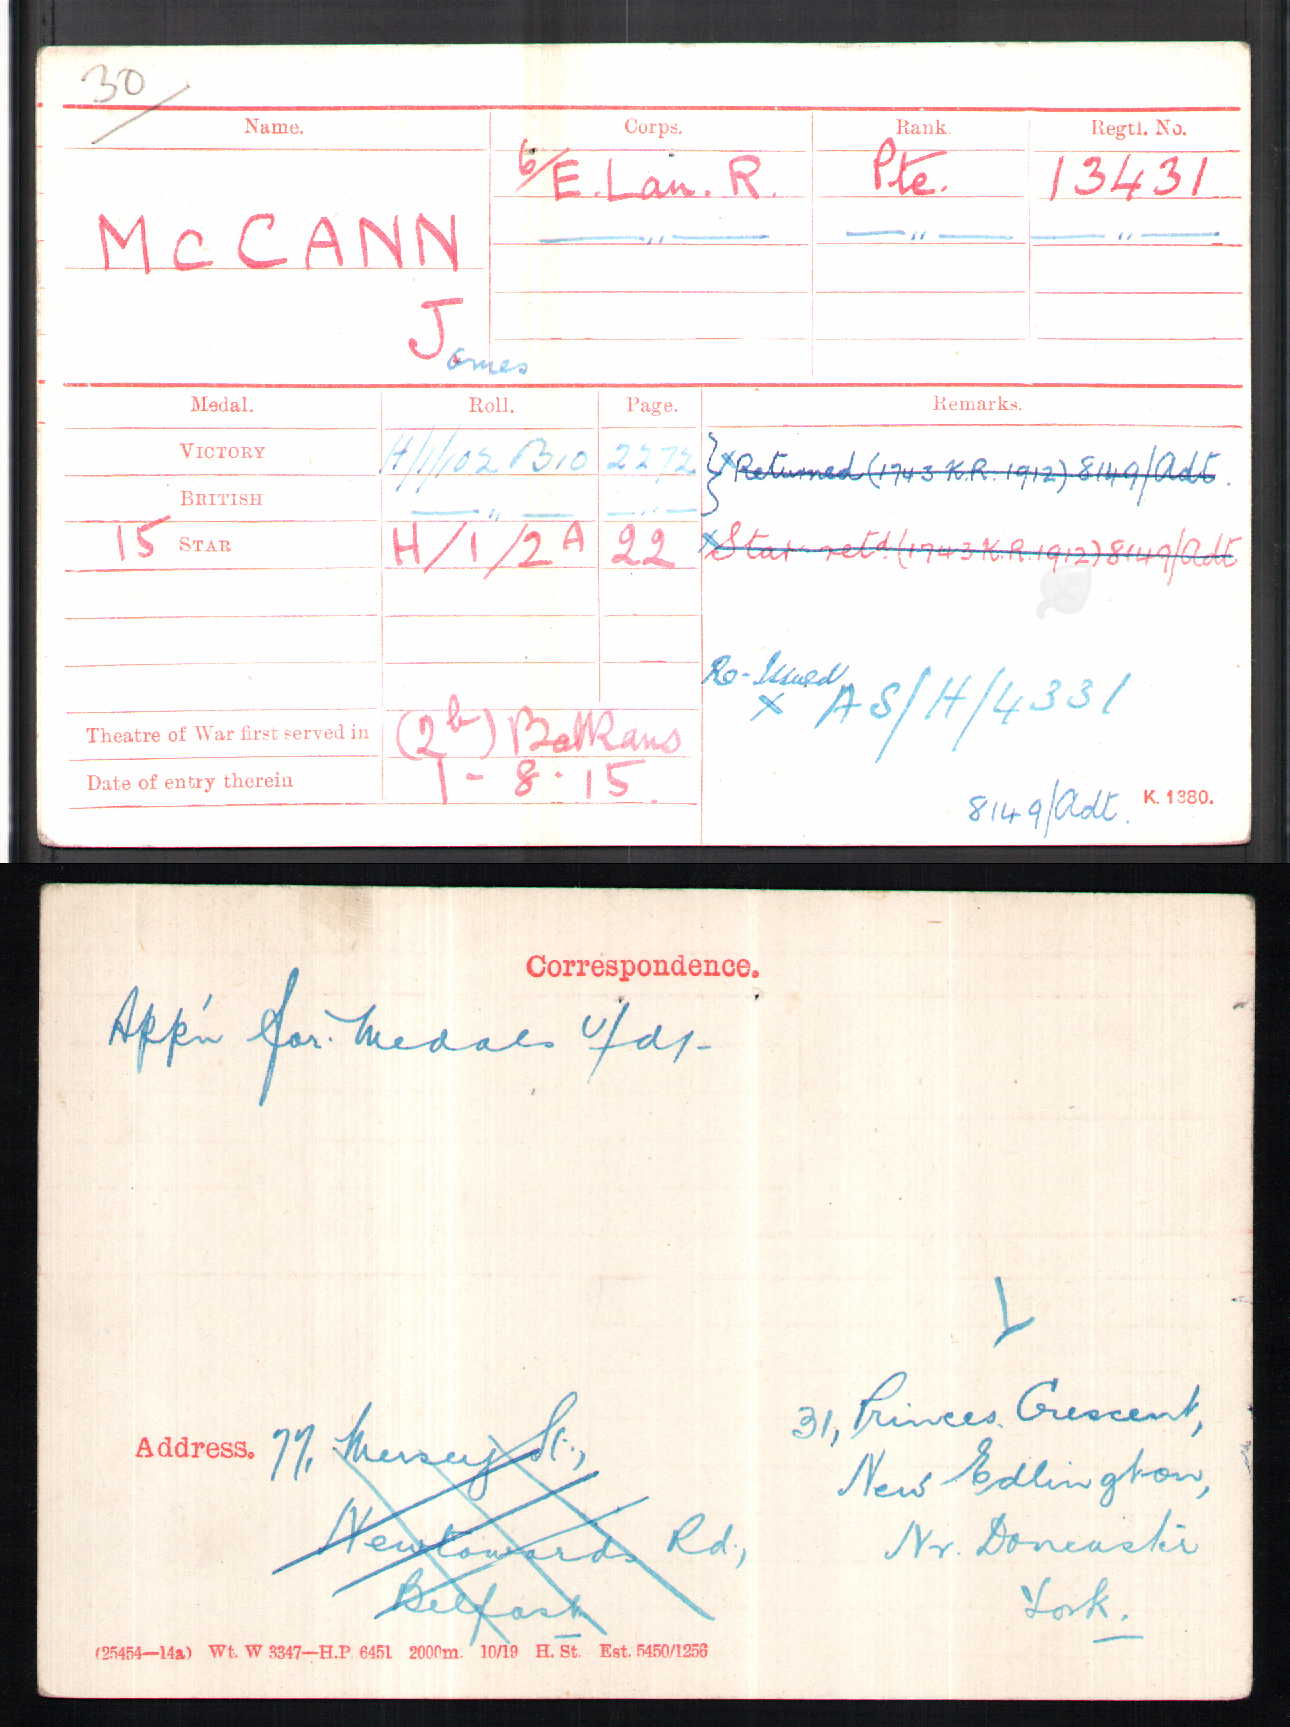 30/
Name. Corps. Rank. Regtl. No.
6/E. Lan. R. Pte. 13431
McCANN — " — — " — — " —
James
Medal. Roll. Page. Remarks.
VICTORY H/1/102 B10 2272 } x Returned (1743 K.R. 1912) 8149/Adt.
BRITISH — " — — " —
15 STAR H/1/2A 22 x Star retd. (1743 K.R. 1912) 8149/Adt
Re-Issued x AS/H/4331
Theatre of War first served in (2b) Balkans
Date of entry therein 1-8-15.
8149/Adt. K. 1380.
Correspondence.
App'n for Medals
Address. 77, Mersey St.,
Newtowards Rd.,
Belfast
31, Princes Crescent,
New Edlington,
Nr. Doncaster
York.
(25454—14a) Wt. W 3347—H.P. 6451 2000m. 10/19 H. St. Est. 5450/1256